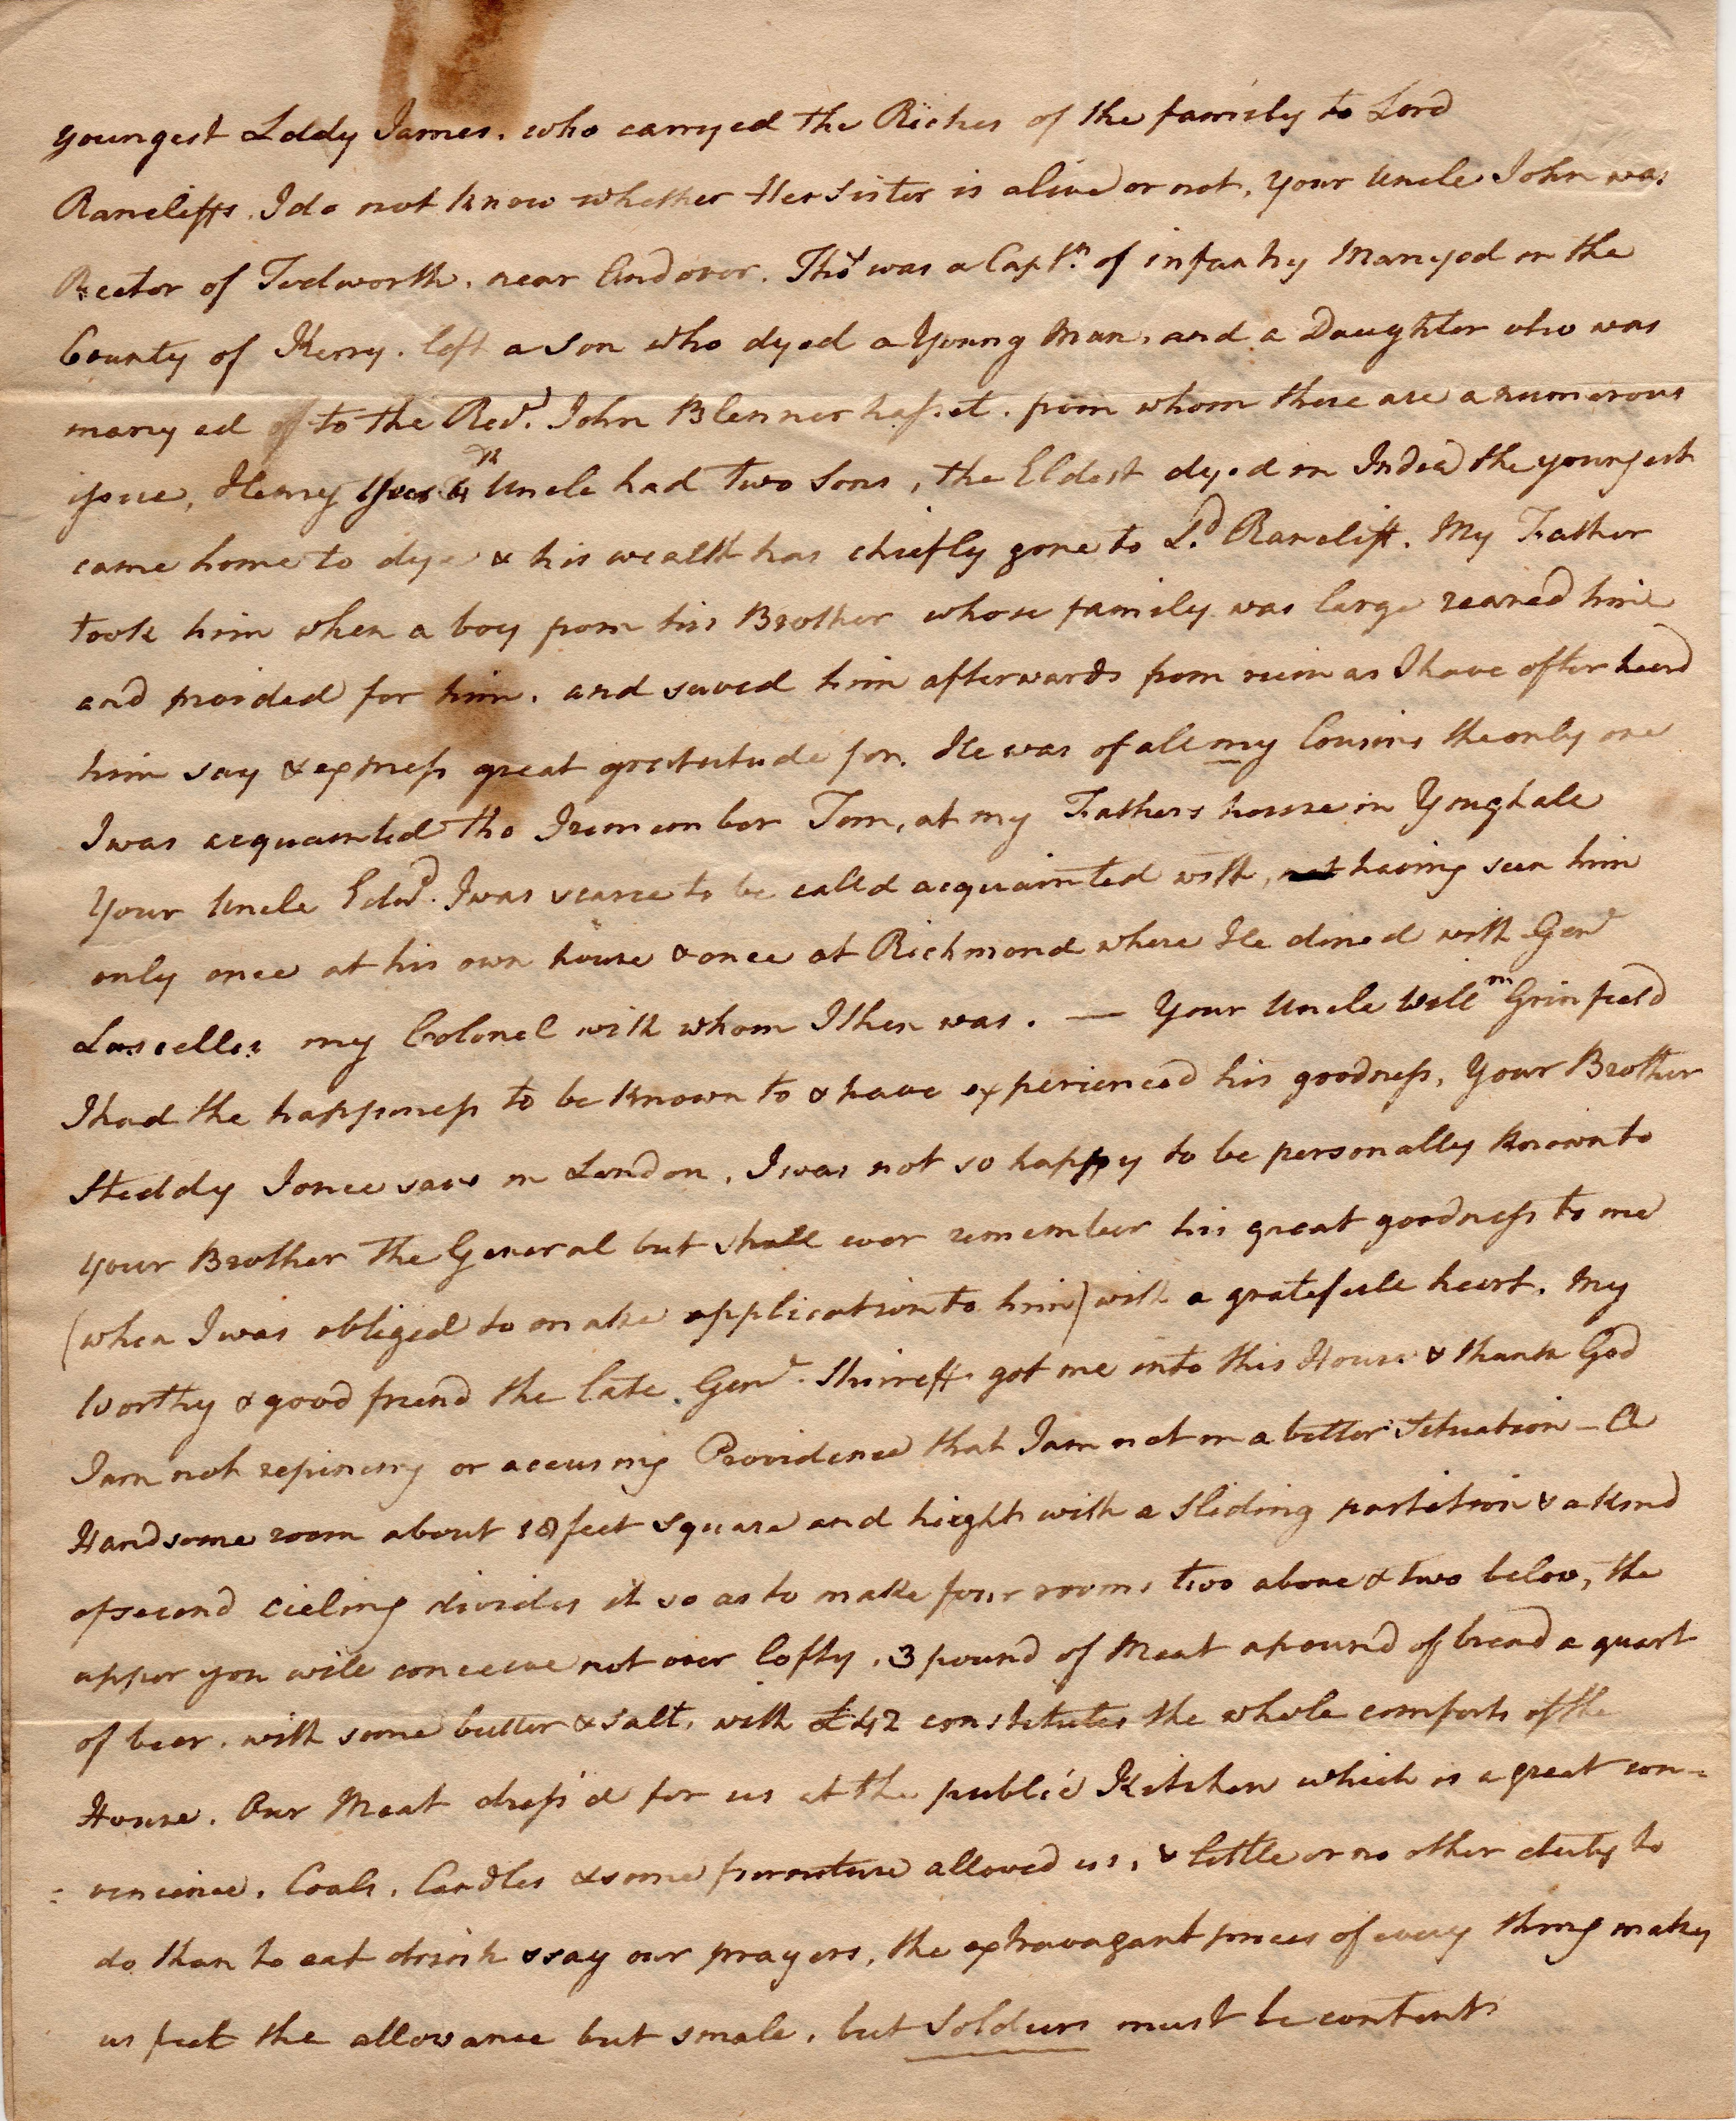 youngest Lady James. who carryed the Riches of the family to Lord
Rancliffs. I do not know whether Her Sister is alive or not, your Uncle John was
Rector of Tedworth. near Andover. Thos was a Captn. of infantry Marryed in the
County of Kerry. left a Son who dyed a Young Man. and a Daughter who was
marryed to the Revd. John Blennerhasset. from whom there are a numerous
issue, Henry Your 4th Uncle had Two Sons, the Eldest dyed in India the youngest
came home to dye & his wealth has chiefly gone to Ld. Rancliff. My Father
took him when a boy from his Brother whose family was large reared him
and provided for him. and saved him afterwards from ruin as I have often heard
him say & express great gratitude for. He was of all my Cousins the only one
I was acquainted tho I remember Tom, at my Fathers house in Youghall
Your Uncle Edwd. I was scarce to be calld acquainted with, having seen him
only once at his own house & once at Richmond where He dined with Genl
Lascelles my Colonel with whom I then was. — Your Uncle Willm Grinfield
I had the happiness to be known to & have experienced his goodness, Your Brother
Steddy I once saw in London, I was not so happy to be personally known to
your Brother the General but shall ever remember his great goodness to me
(when I was obliged to make application to him) with a gratefull heart. My
Worthy & good friend the late Genl. Shirreff got me into this House & thank God
I am not repining or accusing Providence that I am not in a better Situation – A
Handsome room about 18 feet square and height with a Sliding partition & a kind
of second cieling divides it so as to make four rooms two above & two below, the
upper you will conceive not over lofty. 3 pound of Meat a pound of bread a quart
of beer. with some butter & salt, with £42 constitutes the whole comforts of the
House. Our Meat dress'd for us at the public Kitchen which is a great con=
=venience. Coals. Candles & some furniture allowed us, & little or no other duty to
do than to eat drink & say our prayers, the extravagant prices of every thing makes
us feel the allowance but small. but Soldiers must be content